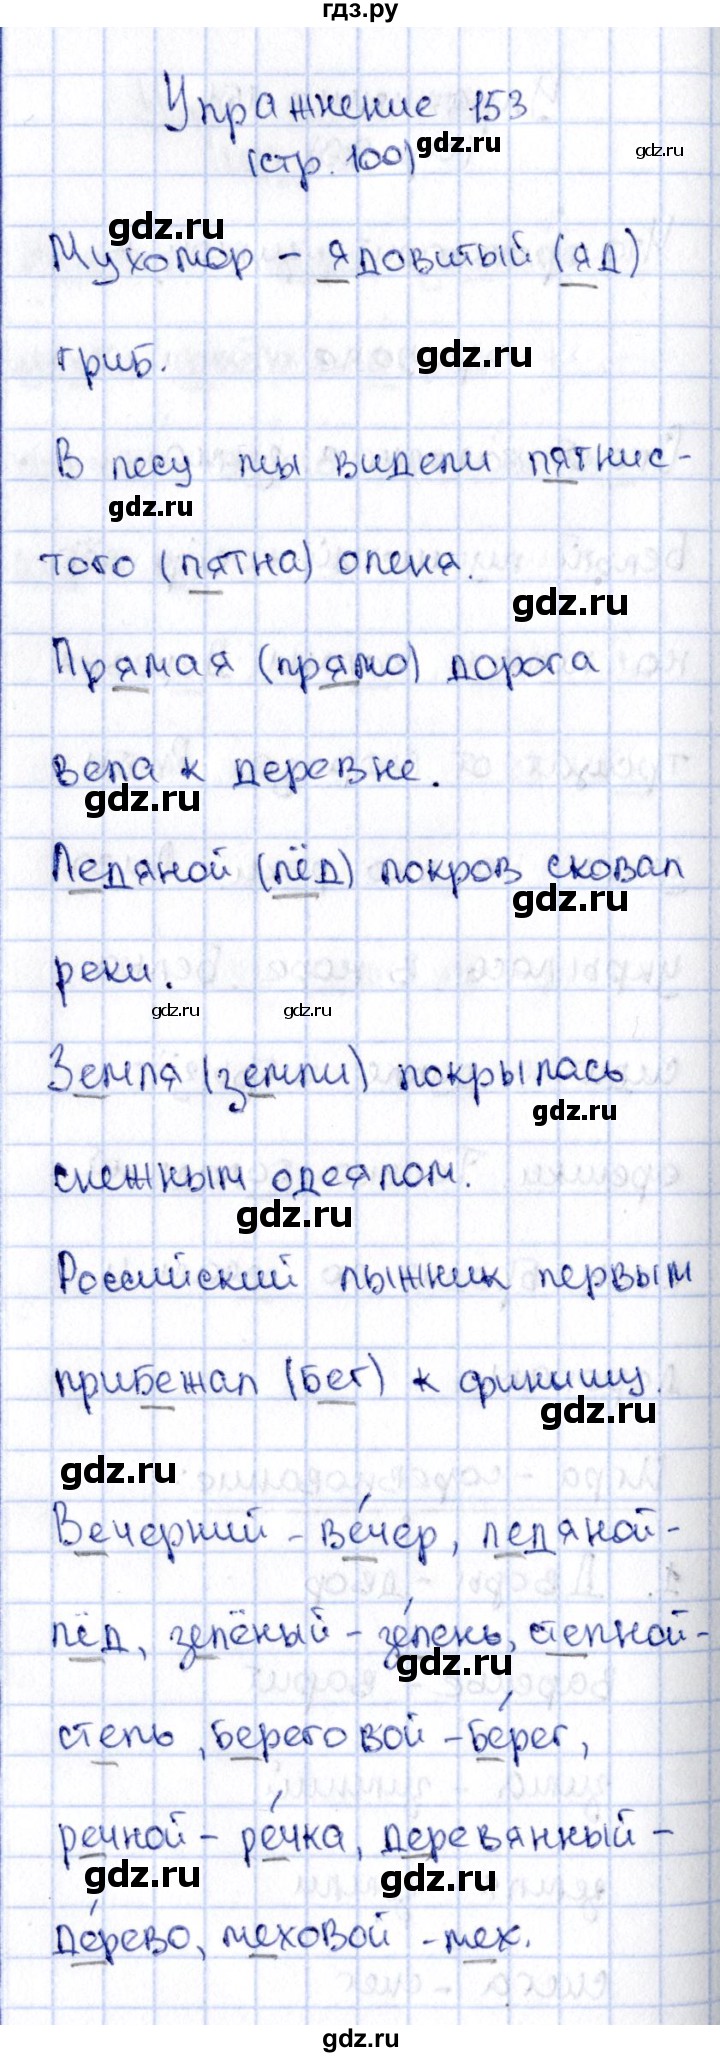 гдз.ру
Упражнение 153
(стр. 100)
gdz.ru
gdz.ru
gdz.ru
Мухомор – ядовитый (яд)
гриб.
gdz.ru
В лесу мы видели пятнис-
gdz.ru
того (пятна) оленя.
gdz.ru
Прямая (прямо) дорога
вела к деревне.
gdz.ru
Ледяной (лёд) покров сковал
gdz.ru
реки.
gdz.ru
gdz.ru
Земля (земли) покрылась
gdz.ru
снежным одеялом.
gdz.ru
Российский лыжник первым
прибежал (бег) к финишу.
gdz.ru
gdz.ru
Вечерний – ве́чер, ледяной –
лёд, зелёный – зе́лень, степной –
gdz.ru
степь, береговой – бе́рег,
речной – ре́чка, деревянный –
gdz.ru
gdz.ru
де́рево, меховой – мех.
gdz.ru